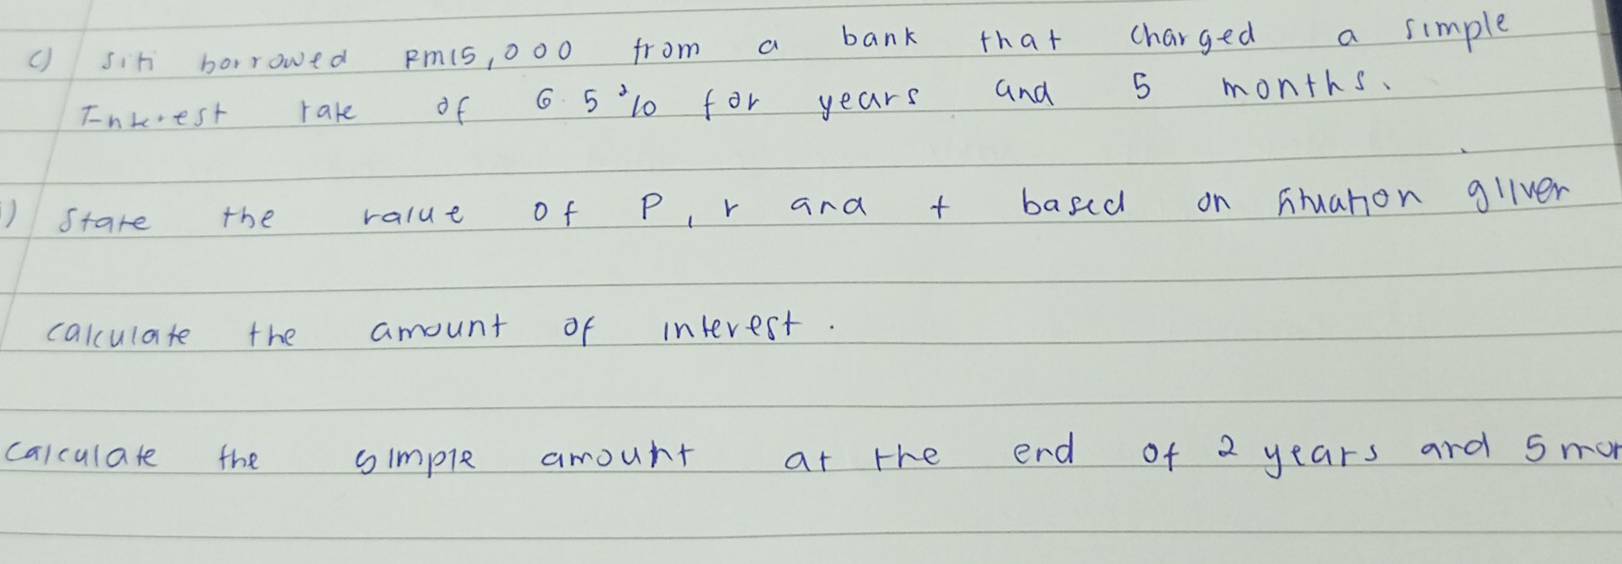 c) siti borrowed RM15,000 from a bank that charged a simple
Interest rate of 6.5% for years and 5 months.
i) State the value of P, r and t based on situation gliven
calculate the amount of interest.
calculate the simple amount at the end of 2 years and 5 mon